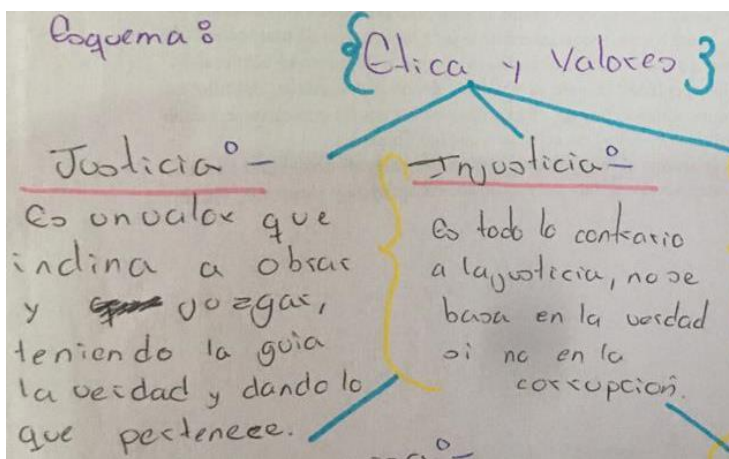 Esquema:
{Etica y Valores}
Justicia:-
Es un valor que
inclina a obrar
y juzgar,
teniendo la guia
la verdad y dando lo
que pertenece.
Injusticia:-
Es todo lo contrario
a la justicia, no se
basa en la verdad
si no en la
corrupción.